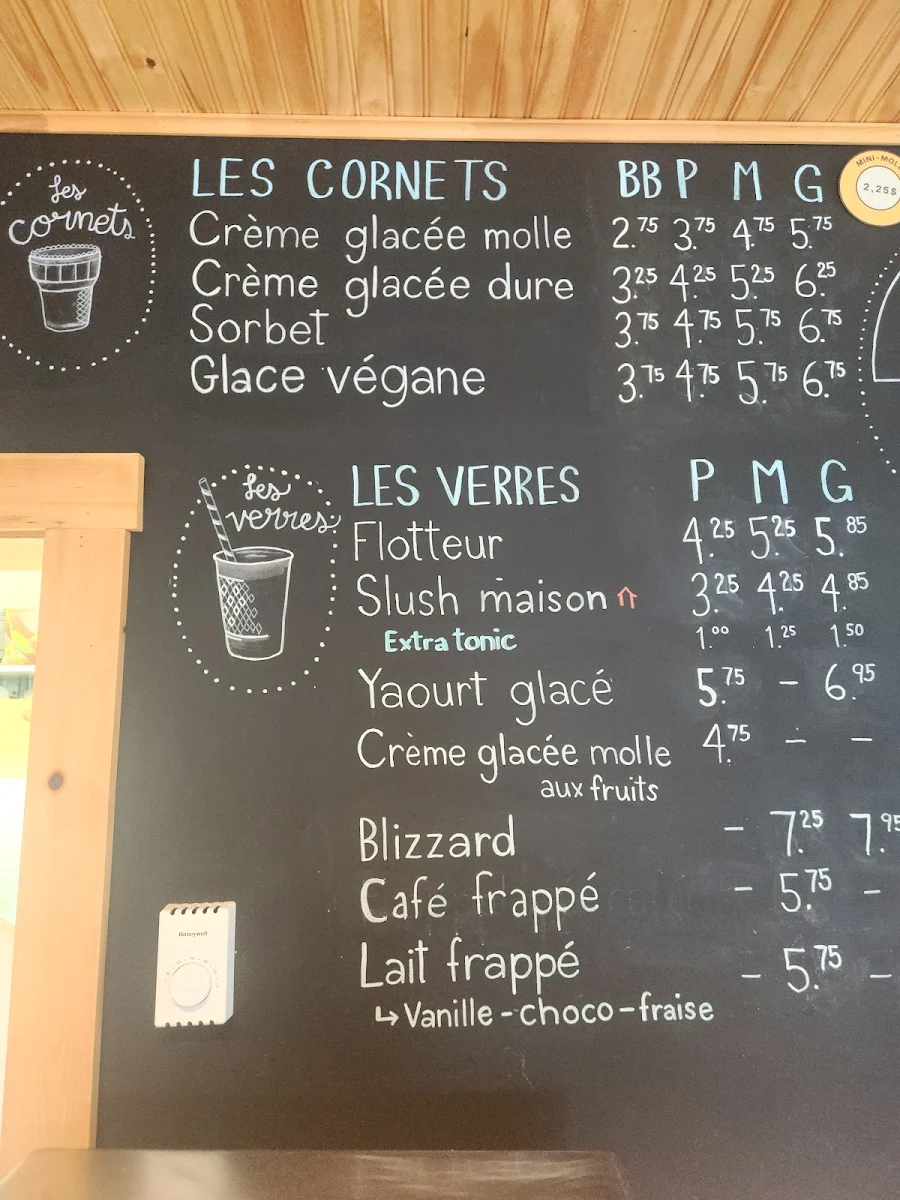 les
cornets
LES CORNETS BB P M G
Crème glacée molle 2.75 3.75 4.75 5.75
Crème glacée dure 3.25 4.25 5.25 6.25
Sorbet 3.75 4.75 5.75 6.75
Glace végane 3.75 4.75 5.75 6.75
2,25$
les
verres
LES VERRES P M G
Flotteur 4.25 5.25 5.85
Slush maison 3.25 4.25 4.85
Extra tonic 1.00 1.25 1.50
Yaourt glacé 5.75 - 6.95
Crème glacée molle 4.75 - -
aux fruits
Blizzard - 7.25 7.95
Café frappé - 5.75 -
Lait frappé - 5.75 -
↳ Vanille - choco - fraise
Honeywell